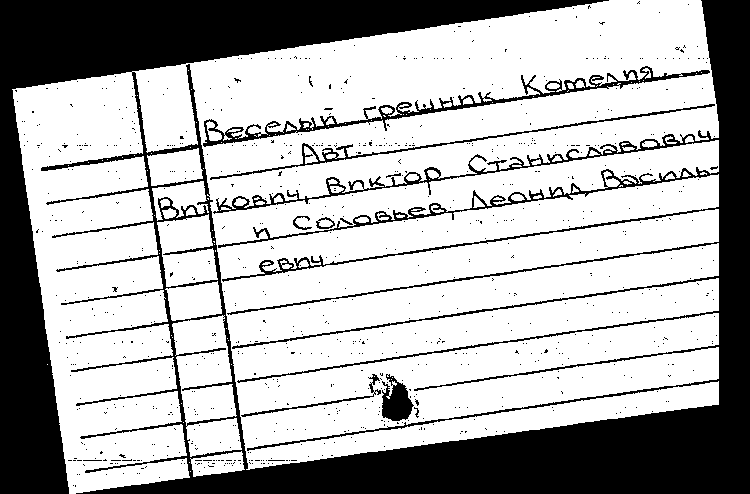 Веселый грешник Комедия.
Авт.
Виткович, Виктор Станиславович
и Соловьев, Леонид Василь-
евич.